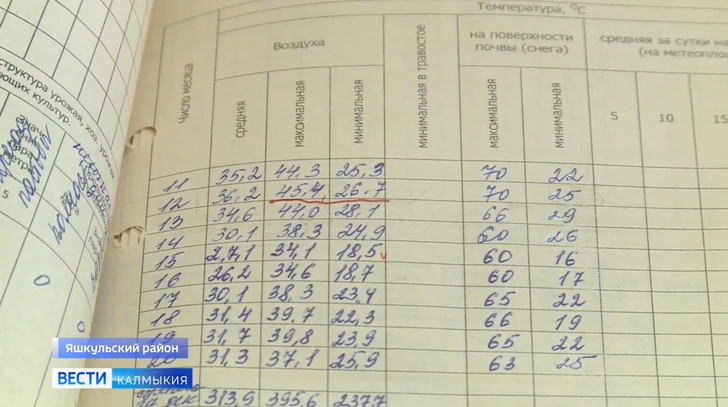 Температура, °С
Воздуха
на поверхности почвы (снега)
средняя за сутки на
(на метеопло
Число месяца
средняя
максимальная
минимальная
минимальная в травостое
максимальная
минимальная
5 10 15
11 35,2 44.3 25,3 70 22
12 36,2 45,4 26,7 70 25
13 34,6 44,0 28,1 66 29
14 30,1 38,3 24,9 60 26
15 2,7,1 34,1 18,5 60 16
16 26,2 34,6 18,7 60 17
17 30,1 38,3 23,4 65 22
18 31,4 39.7 22,3 66 19
19 31,7 39,8 23,9 65 22
20 31,3 37,1 25,9 63 25
313,9 395,6 237,7
структура урожая, хоз. урожай
ющих культур.
Яшкульский район
ВЕСТИ КАЛМЫКИЯ